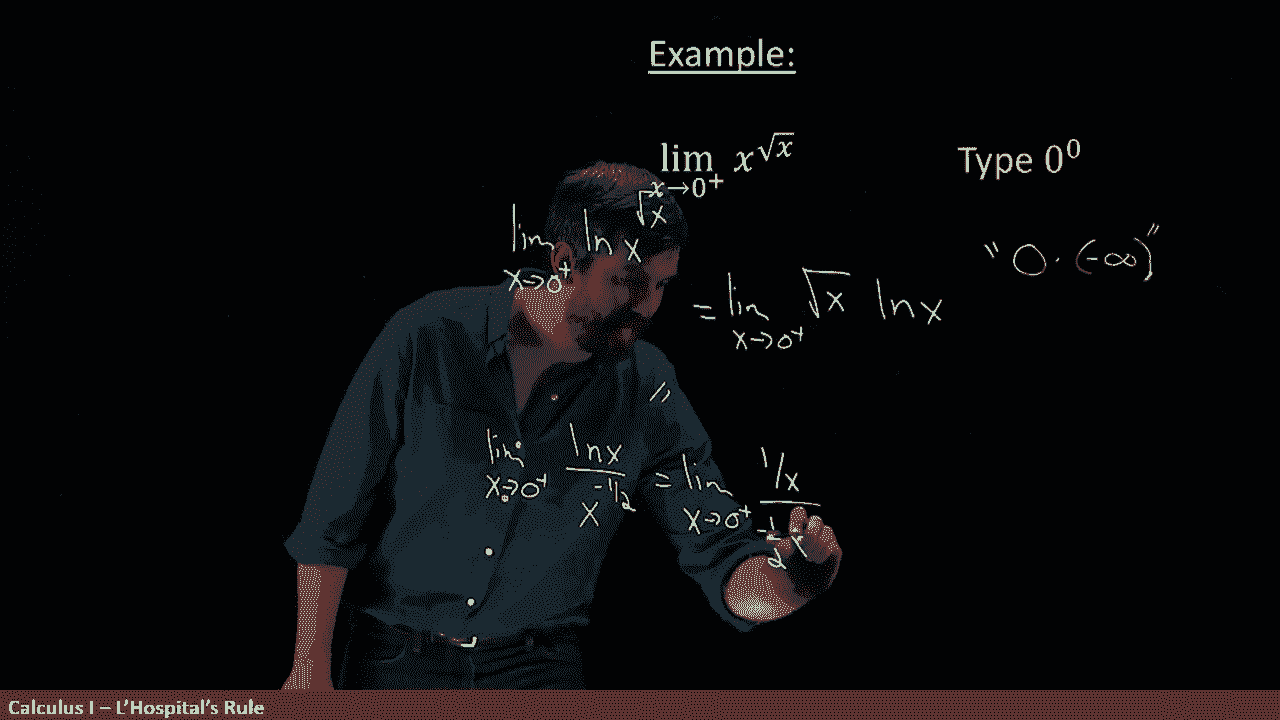 Example:
lim x→0⁺ x^√x Type 0⁰
lim x→0⁺ ln x^√x
= lim x→0⁺ √x ln x " 0 · (-∞) "
=
lim x→0⁺ ln x / x^(-1/2) = lim x→0⁺ 1/x / -1/2
Calculus I – L'Hospital's Rule